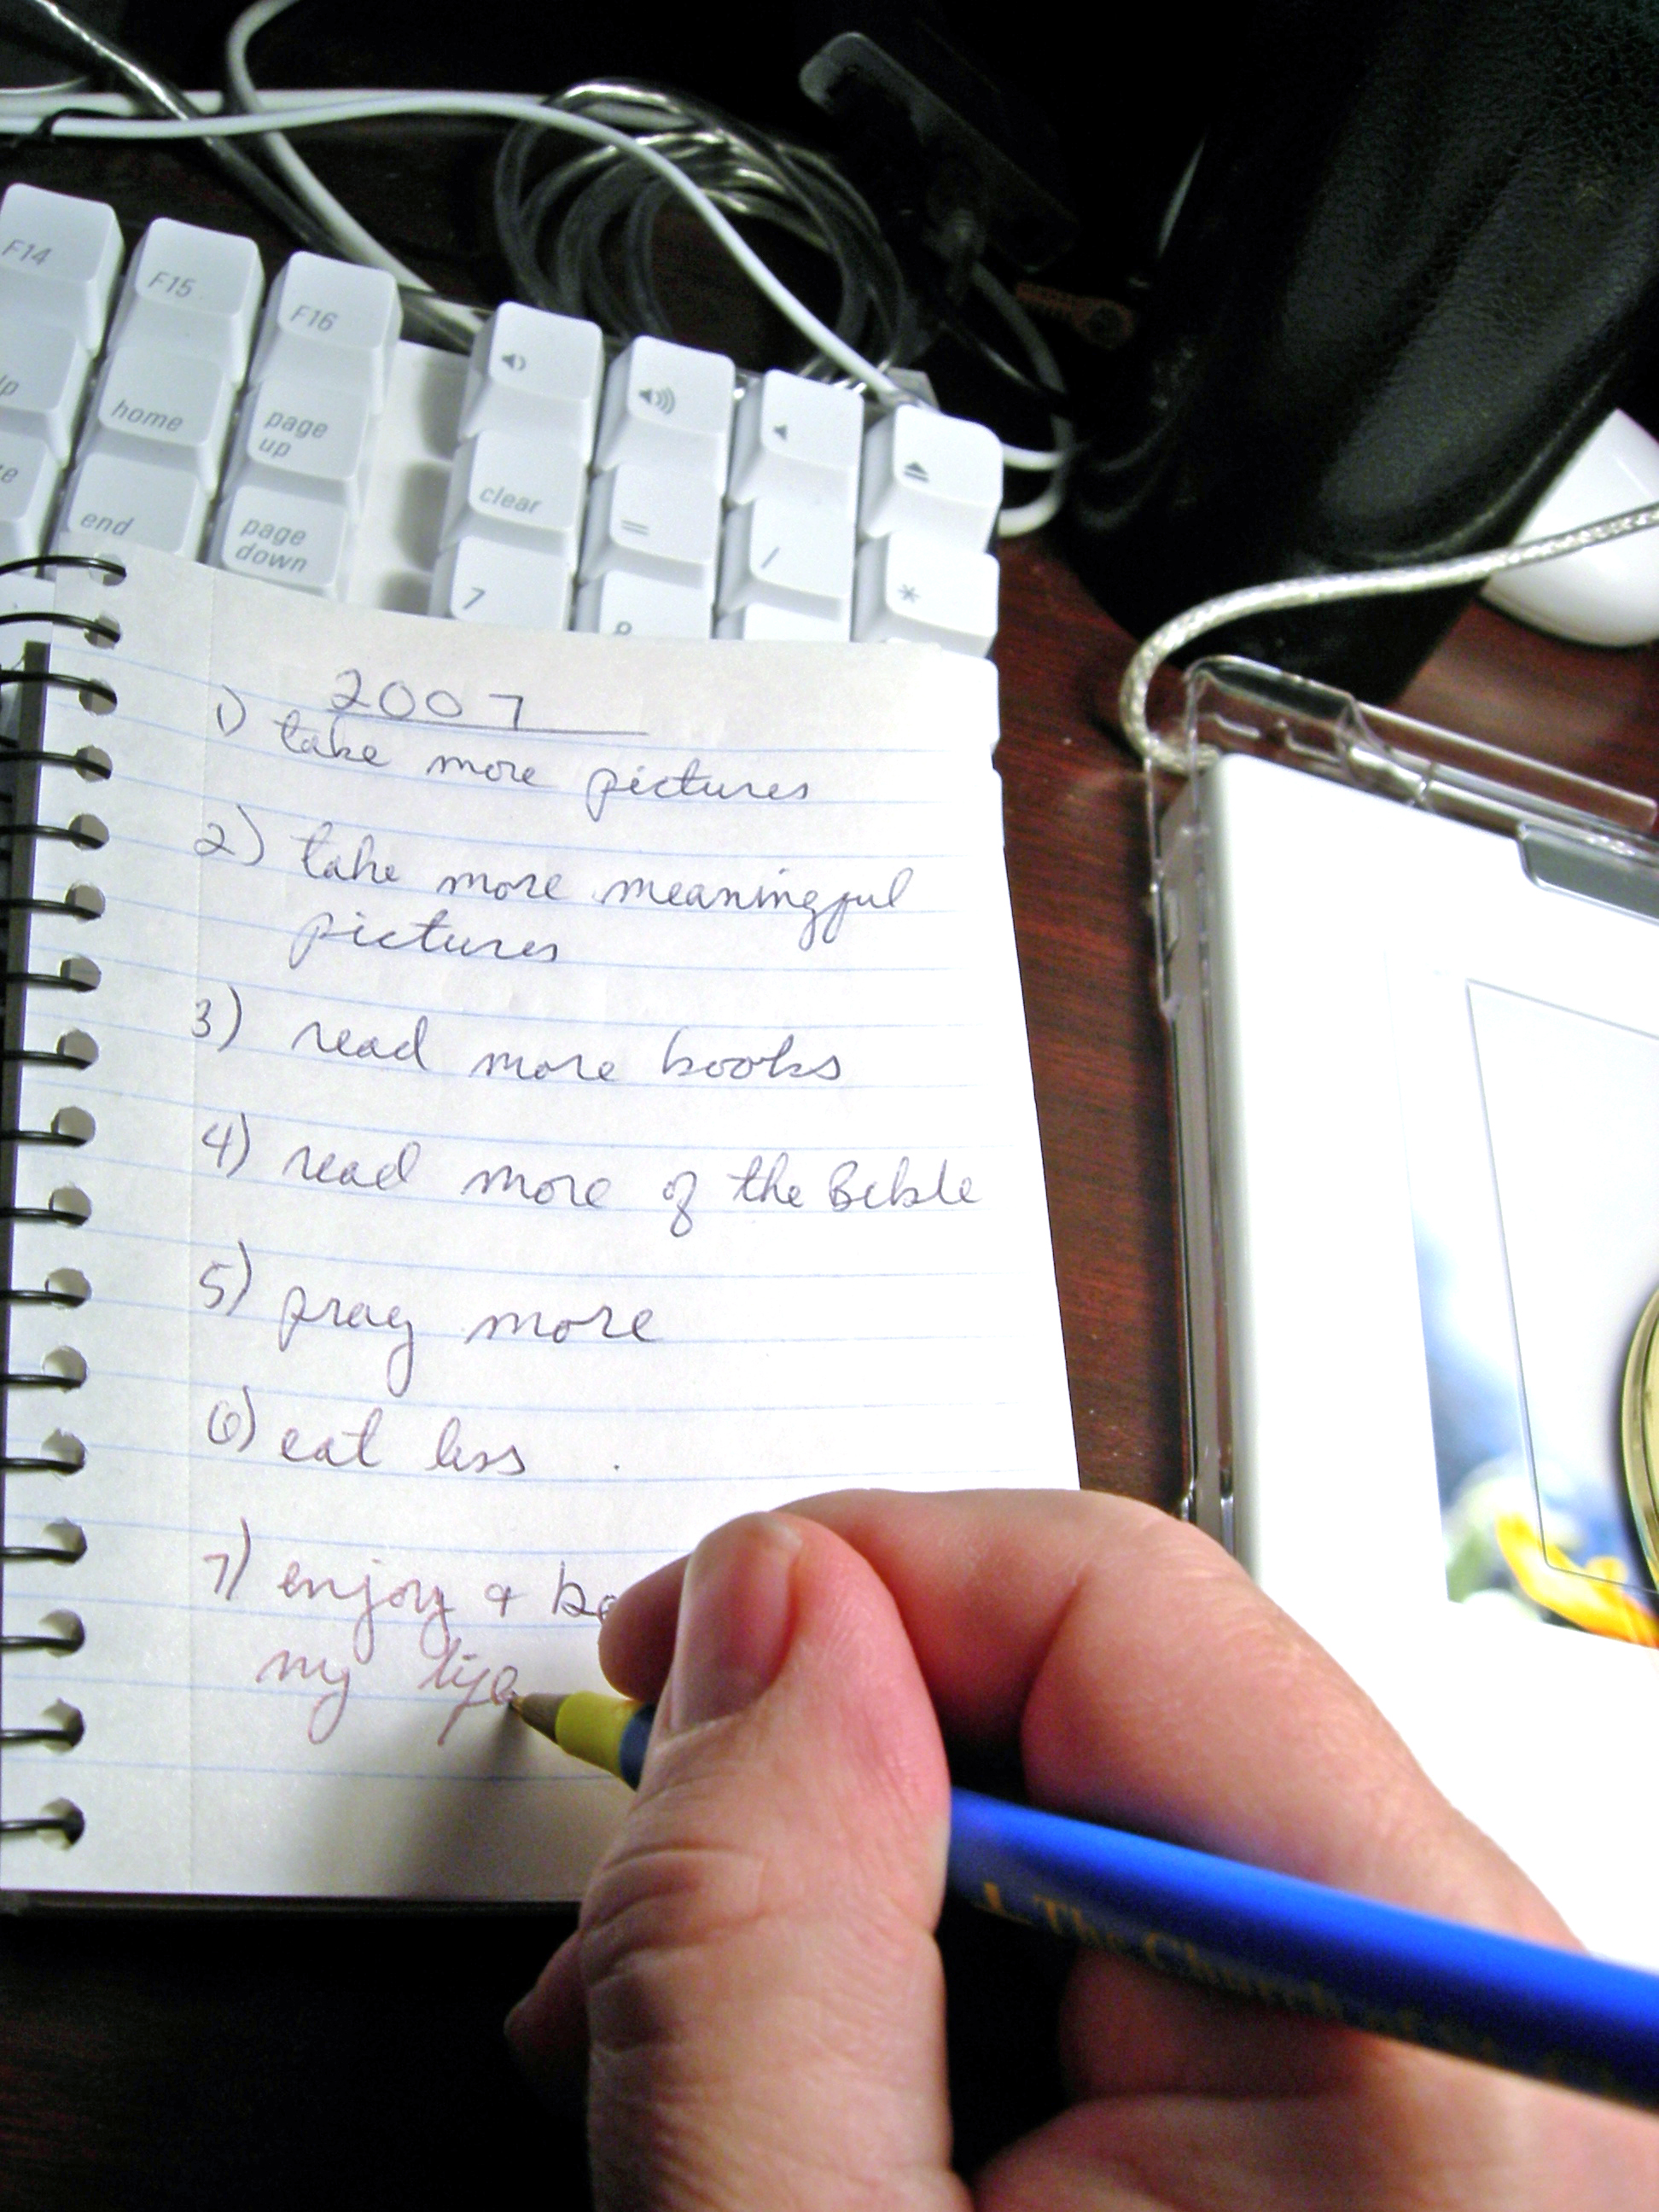 F14
F15
F16
home
page
up
clear
=
/
*
end
page
down
7
2007
1) take more pictures
2) take more meaningful
pictures
3) read more books
4) read more of the Bible
5) pray more
6) eat less
7) enjoy &
my life
The Church of